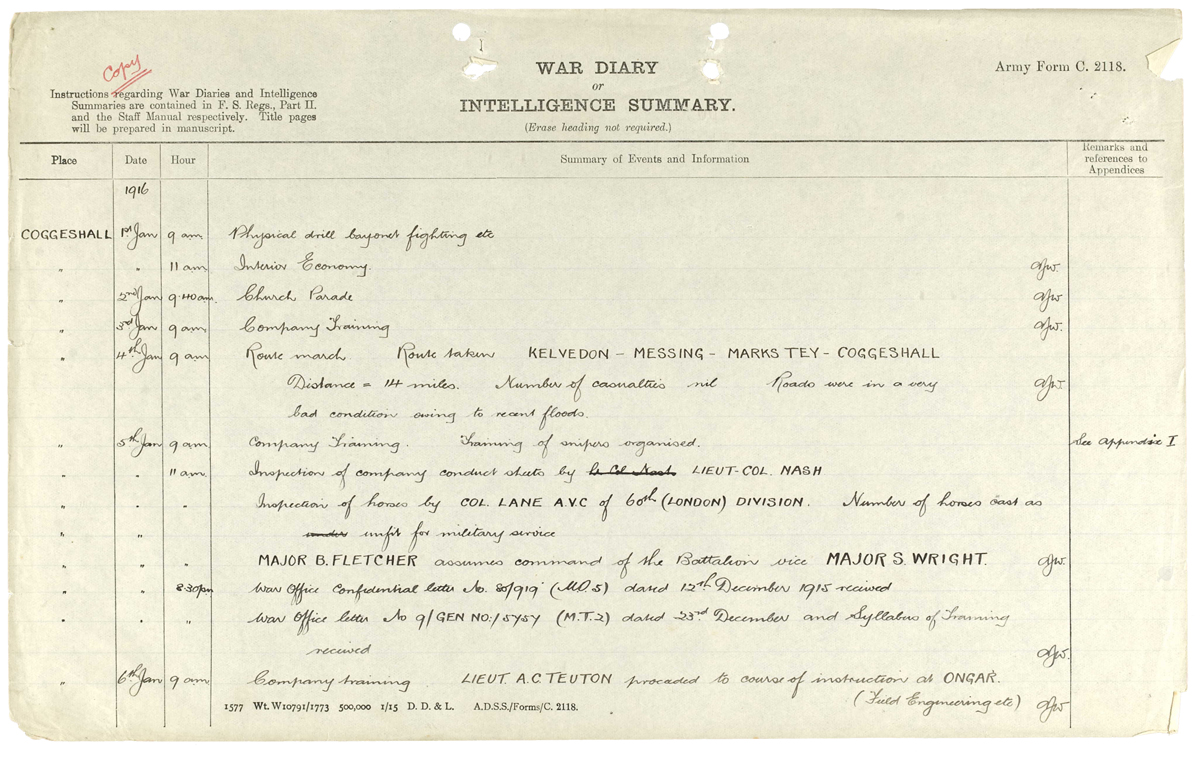 Copy
Instructions regarding War Diaries and Intelligence
Summaries are contained in F. S. Regs., Part II.
and the Staff Manual respectively. Title pages
will be prepared in manuscript.
WAR DIARY
or
INTELLIGENCE SUMMARY.
(Erase heading not required.)
Army Form C. 2118.
Place Date Hour Summary of Events and Information Remarks and references to Appendices
1916
COGGESHALL 1st Jan 9 am Physical drill bayonet fighting etc
" " 11 am Interior Economy.
" 2nd Jan 9.40am. Church Parade
" 3rd Jan 9 am Company Training
" 4th Jan 9 am Route march. Route taken KELVEDON - MESSING - MARKS TEY - COGGESHALL
Distance = 14 miles. Number of casualties nil Roads were in a very
bad condition owing to recent floods.
" 5th Jan 9 am Company Training. Training of snipers organised. See Appendix I
" " 11 am Inspection of company conduct sheets by Lt Col Nash LIEUT-COL. NASH
" " " Inspection of horses by COL. LANE A.V.C of 60th (LONDON) DIVISION. Number of horses cast as
" " under unfit for military service
" " " MAJOR B. FLETCHER assumes command of the Battalion vice MAJOR S. WRIGHT.
" " 8.30pm War Office Confidential letter No. 80/919 (M.O.5) dated 12th December 1915 received
" " " War Office letter No 9/GEN NO:/5757 (M.T.2) dated 23rd December and Syllabus of Training
received
" 6th Jan 9 am Company training LIEUT. A.C TEUTON proceded to course of instruction at ONGAR.
(Field Engineering etc)
1577 Wt. W10791/1773 500,000 1/15 D. D. & L. A.D.S.S./Forms/C. 2118.